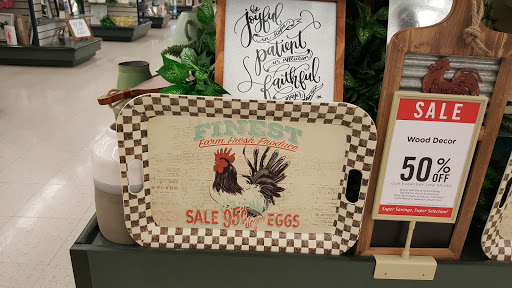 be
Joyful
in hope
patient,
in affliction
faithful
FINEST
Farm Fresh Produce
SALE 95¢ dozen EGGS
SALE
Wood Decor
50% OFF
OUR EVERYDAY LOW PRICES
Super Savings, Super Selection!